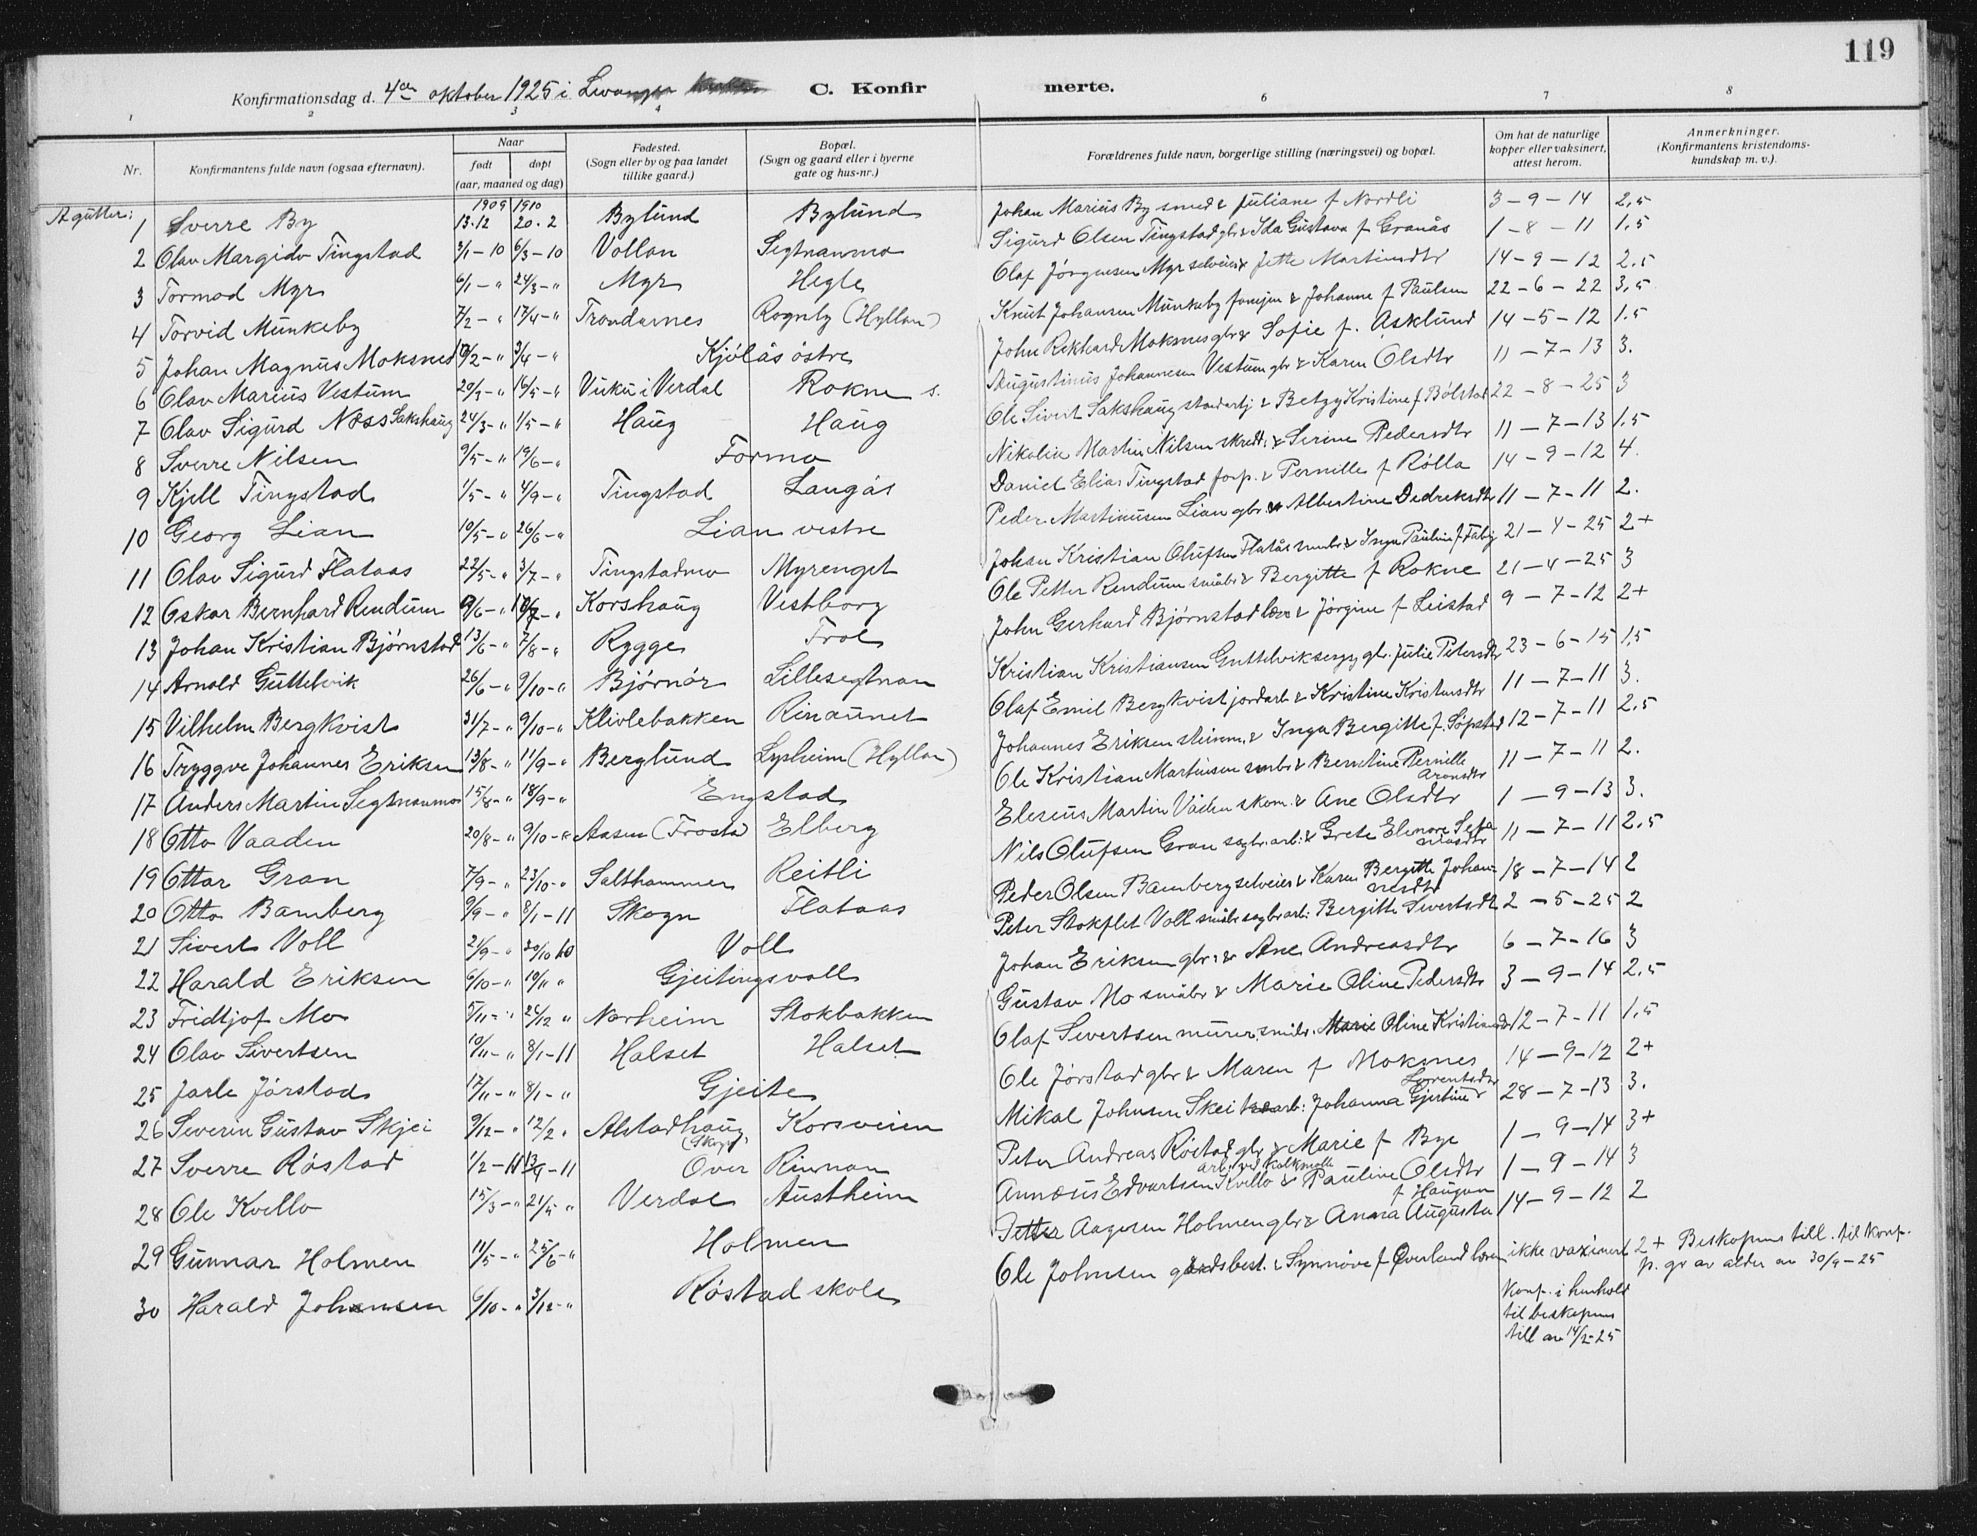 119
Konfirmationsdag d. 4de oktober 1925 i Levanger C. Konfirmerte.
1 2 3 4 6 7 8
Nr. Konfirmantens fulde navn (ogsaa efternavn). Naar født døpt (aar, maaned og dag) Fødested. (Sogn eller by og paa landet tillike gaard.) Bopæl. (Sogn og gaard eller i byerne gate og hus-nr.) Forældrenes fulde navn, borgerlige stilling (næringsvei) og bopæl. Om hat de naturlige kopper eller vaksinert, attest herom. Anmerkninger. (Konfirmantens kristendomskundskap m. v.).
A gutter: 1909 1910
1 Sverre By 13.12 20.2 Bylund Bylund Johan Marius By smed & Juliane f Nordli 3-9-14 2,5
2 Olav Margido Tingstad 3/1-10 6/3-10 Vollan Segtnanmo Sigurd Olsen Tingstad gbr & Ida Gustava f Granås 1-8-11 1.5
3 Tormod Myr 6/1-" 24/3-" Myr Hegle Olaf Jörgensen Myr selveier & Jette Martinsdtr 14-9-12 2.5
4 Torvid Munkeby 7/2-" 17/4-" Trondarnes Rognly (Hyllan) Knut Johansen Munkeby & Johanne f Paulsen 22-6-22 3,5
5 Johan Magnus Moksnes 3/4-" Kjölås östre John Rikhard Moksnes gbr & Sofie f. Asklund 14-5-12 1.5
6 Olav Marius Vestum 16/5-" Vuku i Verdal Rokne s. Augustinus Johannesen Vestum gbr & Karen Olsdtr 11-7-13 3.
7 Olav Sigurd Næss Sakshaug 24/3-" 1/5-" Haug Haug Ole Sivert Sakshaug & Betzy Kristine f Bölstad 22-8-25 3
8 Sverre Nilsen 9/5-" 19/6-" Formo Nikolai Martin Nilsen skredd. & Serine Pedersdtr 11-7-13 1.5
9 Kjell Tingstad 1/5-" 4/9-" Tingstad Langås Daniel Elias Tingstad forp. & Pernille f Rölla 14-9-12 4.
10 Georg Lian 10/5-" 26/6-" Lian vestre Peder Martinusen Lian gbr & Albertine Dedreksdtr 11-7-11 2.
11 Olav Sigurd Flataas 22/5-" 3/7-" Tingstadmo Myrenget Johan Kristian Olufsen Flatås & Inga Pauline f Faby 21-4-25 2+
12 Oskar Bernhard Rendum 9/6-" Korshaug Vestborg Ole Petter Rendum småbr & Bergitte f Rokne 21-4-25 3
13 Johan Kristian Bjørnstad 13/6-" 7/8-" Rygge Frol John Gerhard Bjørnstad & Jörgine f Leistad 9-7-12 2+
14 Arnold Guttelvik 26/6-" 9/10-" Björnör Lillesegtnan Kristian Kristiansen Guttelvik Julie Petersdtr 23-6-15 1,5
15 Vilhelm Bergkvist 31/7-" 9/10-" Klivlebakken Rinaunet Olaf Emil Bergkvist jordarb & Kristine Kristensdtr 11-7-11 3.
16 Tryggve Johannes Eriksen 13/8-" 11/9-" Berglund Lysheim (Hyllan) Johannes Eriksen & Inga Bergitte f. Söpstad 12-7-11 2.5
17 Anders Martin Segtnanmo 15/8-" 18/9-" Engstad Ole Kristian Martinsen smbr & Berntine Pernille Aronsdtr 11-7-11 2.
18 Otto Vaaden 20/8-" 9/10-" Aasen (Frosta) Elberg Eleseus Martin Våden skom. & Ane Olsdtr 1-9-13 3.
19 Ottar Gran 7/9-" 23/10-" Salthammer Reitli Nils Olufsen Gran sagbr.arb. & Grete Elenore 11-7-11 2.5
20 Otto Bamberg 9/9-" 8/1-11 Skogn Flataas Peder Olsen Bamberg selveier & Karen Bergitte Johannesdtr 18-7-14 2
21 Sivert Voll 21/9-" 30/10 Voll Peter Stokflet Voll småbr sagbr arb: Bergitte Sivertsdtr 2-5-25 2
22 Harald Eriksen 6/10-" 19/11 " Gjeitingsvoll Johan Eriksen gbr. & Ane Andreasdtr 6-7-16 3
23 Fridtjof Mo 5/11-" 26/12 " Norheim Stokbakken Gustav Mo småbr & Marie Oline Pedersdtr 3-9-14 2.5
24 Olav Sivertsen 10/11-" 8/1-11 Halset Halset Olaf Sivertsen murer, småbr. Oline Kristiansdtr 12-7-11 1.5
25 Jarle Jörstad 17/11-" 8/1-" Gjeite Ole Jörstad gbr & Maren f Moksnes 14-9-12 2+
26 Severin Gustav Skjei 9/12-" 12/2 " Alstadhaug (Skogn) Korsveien Mikal Johnsen Skei arb: Johanna Gjertine Lorentsdtr 28-7-13 3.
27 Sverre Röstad 1/2-11 -11 Over Rinnan Peter Andreas Röstad gbr & Marie f Bye 1-9-14 3+
28 Ole Kvello 15/3-" 21/5 " Verdal Austheim Annæus Edvartsen Kvello arb. ved Kalkmølle & Pauline Olsdtr 1-9-14 3
29 Gunnar Holmen 11/5-" 25/6-" Holmen Petter Aagesen Holmen gbr & Anna Augusta f Haugan 14-9-12 2
30 Harald Johansen 6/10-" 3/12-" Röstad skole Ole Johnsen gårdsbest. & Synnöve f Överland ikke vaxinert 2+ Beskopens till. til konf. p. gr av alder av 30/9-25
Konf. i henhold
til beskopens
till av 14/2-25